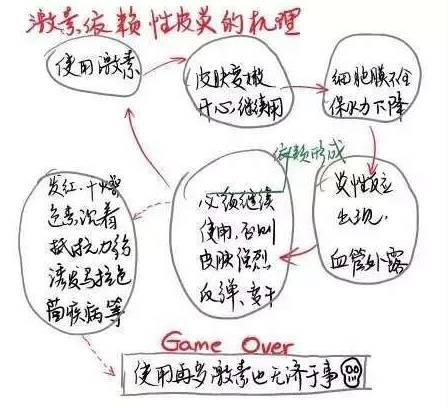 激素依赖性皮炎的机理
使用激素
皮肤变嫩
开心,继续用
细胞膜不全
保水力下降
依赖形成
炎性反应
出现,
血管外露
必须继续
使用,否则
皮肤强烈
反弹、变干
发红、干燥
色素沉着
抵抗力弱
诱发马拉色
菌疾病等
Game Over
使用再多激素也无济于事